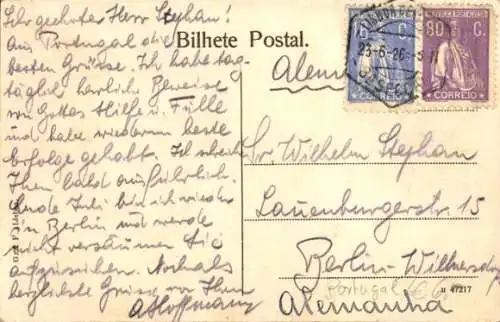 Sehr geehrter Herr Stephan!
Aus Portugal die
besten Grüsse. Ich habe tag
täglich herrliche Beweise
von Gottes Hilfe u. Fülle
und habe wiederum beste
Erfolge gehabt. Ich schreibe
Ihnen bald ausführlich.
Ende Juli bin ich wieder
in Berlin und werde
nicht versäumen Sie
aufzusuchen. Nochmals
herzlichste Grüsse von Ihrem
A Hoffmann
Bilhete Postal.
C.
CORREIO
80 C.
CORREIO
23-6-26
Hr. Wilhelm Stephan
Lauenburgerstr. 15
Berlin-Wilmersdorf
Portugal
Alemanha
u 47217